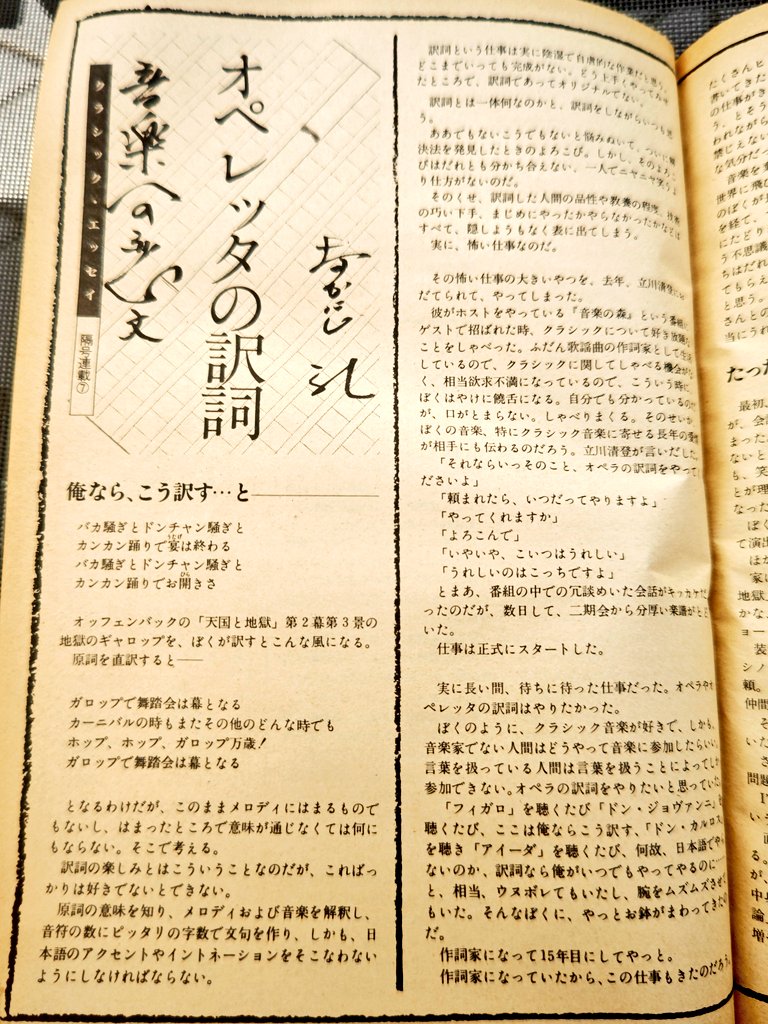 クラシック・エッセイ
隔号連載⑦
音楽への恋文
オペレッタの訳詞
なかにし礼
俺なら、こう訳す…と
バカ騒ぎとドンチャン騒ぎと
カンカン踊りで宴は終わる
うたげ
バカ騒ぎとドンチャン騒ぎと
カンカン踊りでお開きさ
びら
オッフェンバックの「天国と地獄」第2幕第3景の
地獄のギャロップを、ぼくが訳すとこんな風になる。
原詞を直訳すると──
ガロップで舞踏会は幕となる
カーニバルの時もまたその他のどんな時でも
ホップ、ホップ、ガロップ万歳!
ガロップで舞踏会は幕となる
となるわけだが、このままメロディにはまるもので
もないし、はまったところで意味が通じなくては何に
もならない。そこで考える。
訳詞の楽しみとはこういうことなのだが、こればっ
かりは好きでないとできない。
原詞の意味を知り、メロディおよび音楽を解釈し、
音符の数にピッタリの字数で文句を作り、しかも、日
本語のアクセントやイントネーションをそこなわない
ようにしなければならない。
訳詞という仕事は実に陰湿で自虐的な作業だと思う。
どこまでいっても完成がない。どう上手くやってみせ
たところで、訳詞であってオリジナルでない。
訳詞とは一体何なのかと、訳詞をしながらいつも思
う。
ああでもないこうでもないと悩みぬいて、ついに解
決法を発見したときのよろこび。しかし、そのよろこ
びはだれとも分かち合えない。一人でニヤニヤ笑うよ
り仕方がないのだ。
そのくせ、訳詞した人間の品性や教養の程度、技術
の巧い下手、まじめにやったかやらなかったかなどは
すべて、隠しようもなく表に出てしまう。
実に、怖い仕事なのだ。
その怖い仕事の大きいやつを、去年、立川清登にお
だてられて、やってしまった。
彼がホストをやっている『音楽の森』という番組に
ゲストで招ばれた時、クラシックについて好き放題な
ことをしゃべった。ふだん歌謡曲の作詞家として生活
しているので、クラシックに関してしゃべる機会がな
く、相当欲求不満になっているので、こういう時に
ぼくはやけに饒舌になる。自分でも分かっているのだ
が、口がとまらない。しゃべりまくる。そのせいか
ぼくの音楽、特にクラシック音楽に寄せる長年の愛情
が相手にも伝わるのだろう。立川清登が言いだした。
「それならいっそのこと、オペラの訳詞をやってく
ださいよ」
「頼まれたら、いつだってやりますよ」
「やってくれますか」
「よろこんで」
「いやいや、こいつはうれしい」
「うれしいのはこっちですよ」
とまあ、番組の中での冗談めいた会話がキッカケだ
ったのだが、数日して、二期会から分厚い楽譜がとど
いた。
仕事は正式にスタートした。
実に長い間、待ちに待った仕事だった。オペラやオ
ペレッタの訳詞はやりたかった。
ぼくのように、クラシック音楽が好きで、しかも、
音楽家でない人間はどうやって音楽に参加したらいい
言葉を扱っている人間は言葉を扱うことによってしか
参加できない。オペラの訳詞をやりたいと思っていた
「フィガロ」を聴くたび「ドン・ジョヴァンニ」を
聴くたび、ここは俺ならこう訳す、「ドン・カルロス
を聴き「アイーダ」を聴くたび、何故、日本語でやら
ないのか、訳詞なら俺がいつでもやってやるのに……
と、相当、ウヌボレてもいたし、腕をムズムズさせて
もいた。そんなぼくに、やっとお鉢がまわってきたの
だ。
作詞家になって15年目にしてやっと。
作詞家になっていたから、この仕事もきたのだろう。